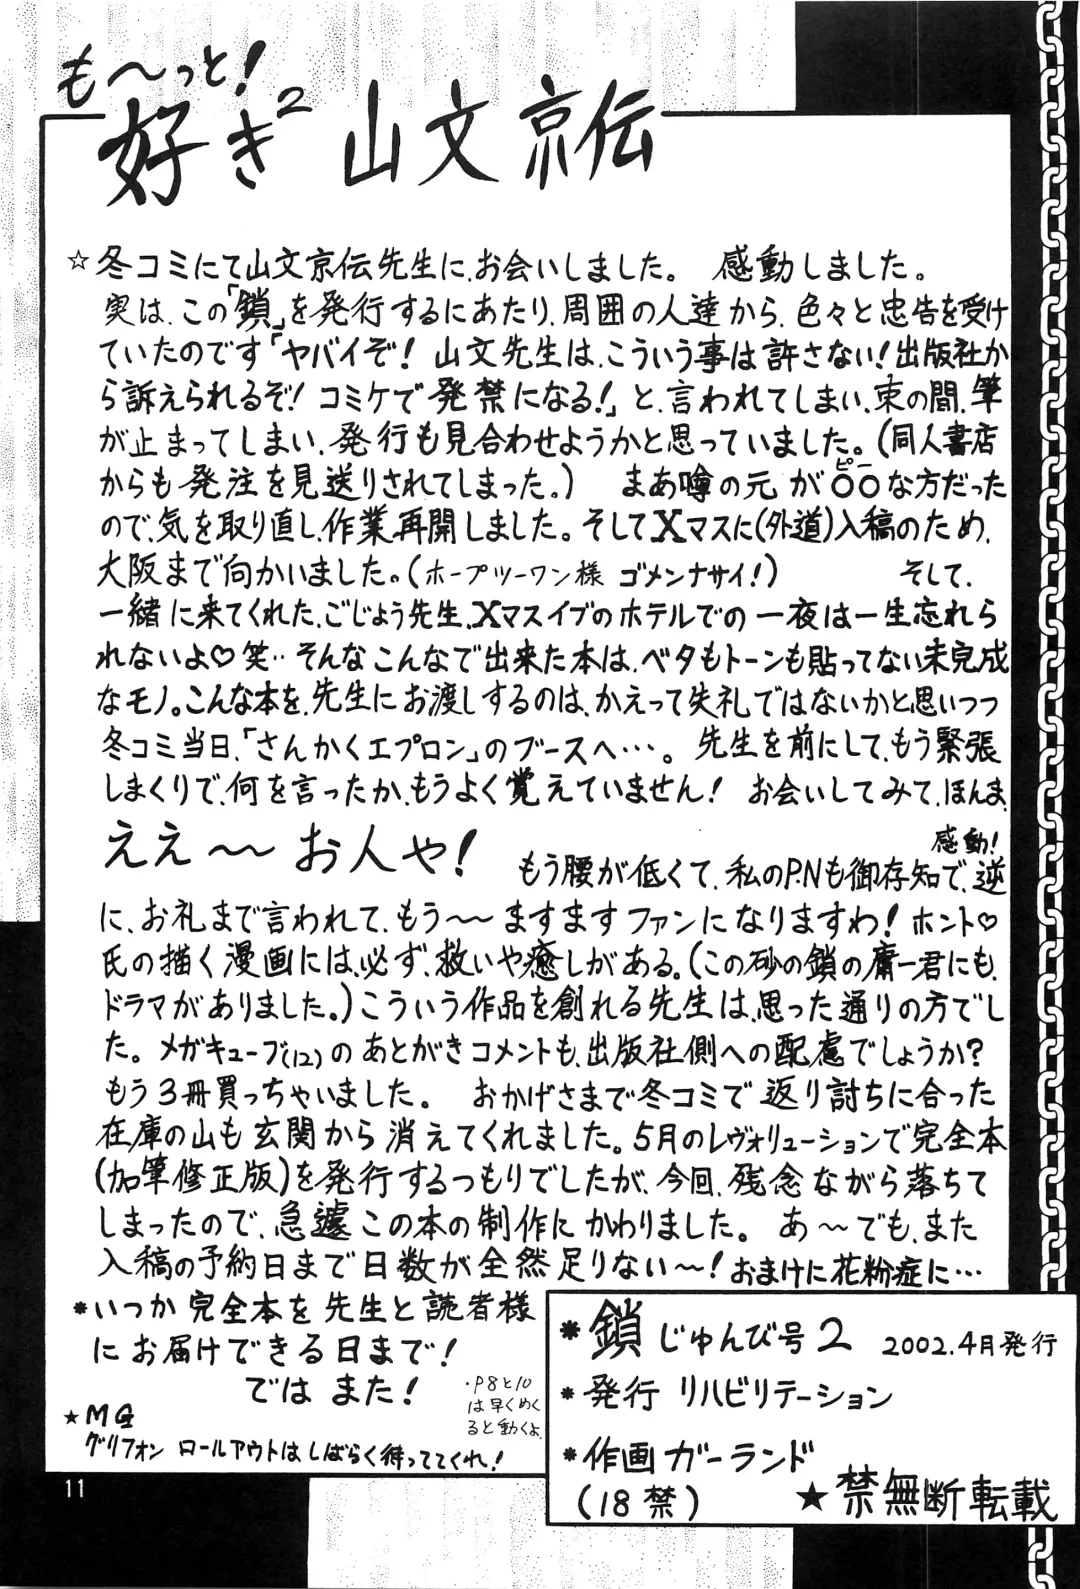 も〜っと!
好き² 山文京伝
☆冬コミにて山文京伝先生に、お会いしました。 感動しました。
実は、この「鎖」を発行するにあたり、周囲の人達から、色々と忠告を受け
ていたのです「ヤバイぞ! 山文先生は、こういう事は許さない!出版社か
ら訴えられるぞ! コミケで発禁になる!」と、言われてしまい、束の間、筆
が止まってしまい、発行も見合わせようかと思っていました。(同人書店
からも発注を見送りされてしまった。) まあ噂の元が○○な方だった
ピー
ので、気を取り直し、作業再開しました。そしてXマスに(外道)入稿のため、
大阪まで向かいました。(ホープツーワン様 ゴメンナサイ!) そして、
一緒に来てくれた、ごじょう先生、Xマスイブのホテルでの一夜は一生忘れら
れないよ♡笑‥そんなこんなで出来た本は、ベタもトーンも貼ってない未完成
なモノ。こんな本を、先生にお渡しするのは、かえって失礼ではないかと思いつつ
冬コミ当日、「さんかくエプロン」のブースへ…。 先生を前にして、もう緊張
しまくりで、何を言ったか、もうよく覚えていません! お会いしてみて、ほんま、
感動!
ええ〜お人や!
もう腰が低くて、私のP.Nも御存知で、逆
に、お礼まで言われて、もう〜ますますファンになりますわ! ホント♡
氏の描く漫画には、必ず、救いや癒しがある。(この砂の鎖の庸一君にも、
ドラマがありました。)こういう作品を創れる先生は、思った通りの方でし
た。メガキューブ(12)のあとがきコメントも、出版社側への配慮でしょうか?
もう3冊買っちゃいました。 おかげさまで冬コミで返り討ちに合った
在庫の山も玄関から消えてくれました。5月のレヴォリューションで完全本
(加筆修正版)を発行するつもりでしたが、今回、残念ながら落ちて
しまったので、急遽この本の制作にかわりました。 あ〜でも、また
入稿の予約日まで日数が全然足りない〜!おまけに花粉症に…
*いつか完全本を先生と読者様
にお届けできる日まで!
では また!
・P8と10
は早くめく
ると動くよ
★MG
グリフォン ロールアウトはしばらく待っててくれ!
*鎖じゅんび号2 2002.4月発行
*発行 リハビリテーション
*作画 ガーランド
(18禁) ★禁無断転載
11